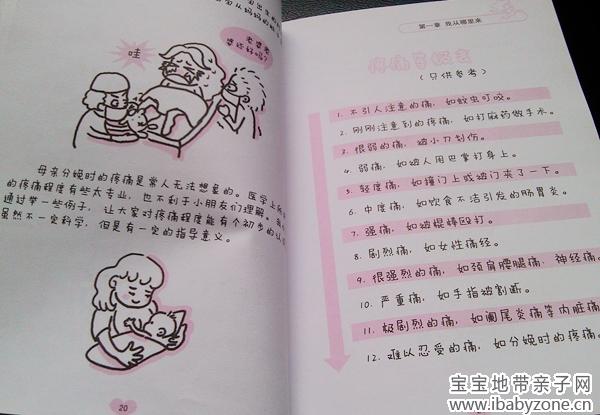 从妈妈的
老婆老婆
还好吗？
哇
母亲分娩时的疼痛是常人无法想象的。医学上
的疼痛程度有些太专业，也不利于小朋友们理解。
通过举一些例子，让大家对疼痛程度能有个初步的认
虽然不一定科学，但是有一定的指导意义。
20
第一章 我从哪里来
疼痛等级表
（只供参考）
1. 不引人注意的痛，如蚊虫叮咬。
2. 刚刚注意到的疼痛，如打麻药做手术。
3. 很弱的痛，被小刀划伤。
4. 弱痛，如被人用巴掌打身上。
5. 轻度痛，如撞门上或被门夹了一下。
6. 中度痛，如饮食不洁引发的肠胃炎。
7. 强痛，如被棍棒殴打。
8. 剧烈痛，如女性痛经。
9. 很强烈的痛，如颈肩腰腿痛、神经痛。
10. 严重痛，如手指被割断。
11. 极剧烈的痛，如阑尾炎痛等内脏痛
12. 难以忍受的痛，如分娩时的疼痛。
宝宝地带亲子网
www.ibabyzone.cn